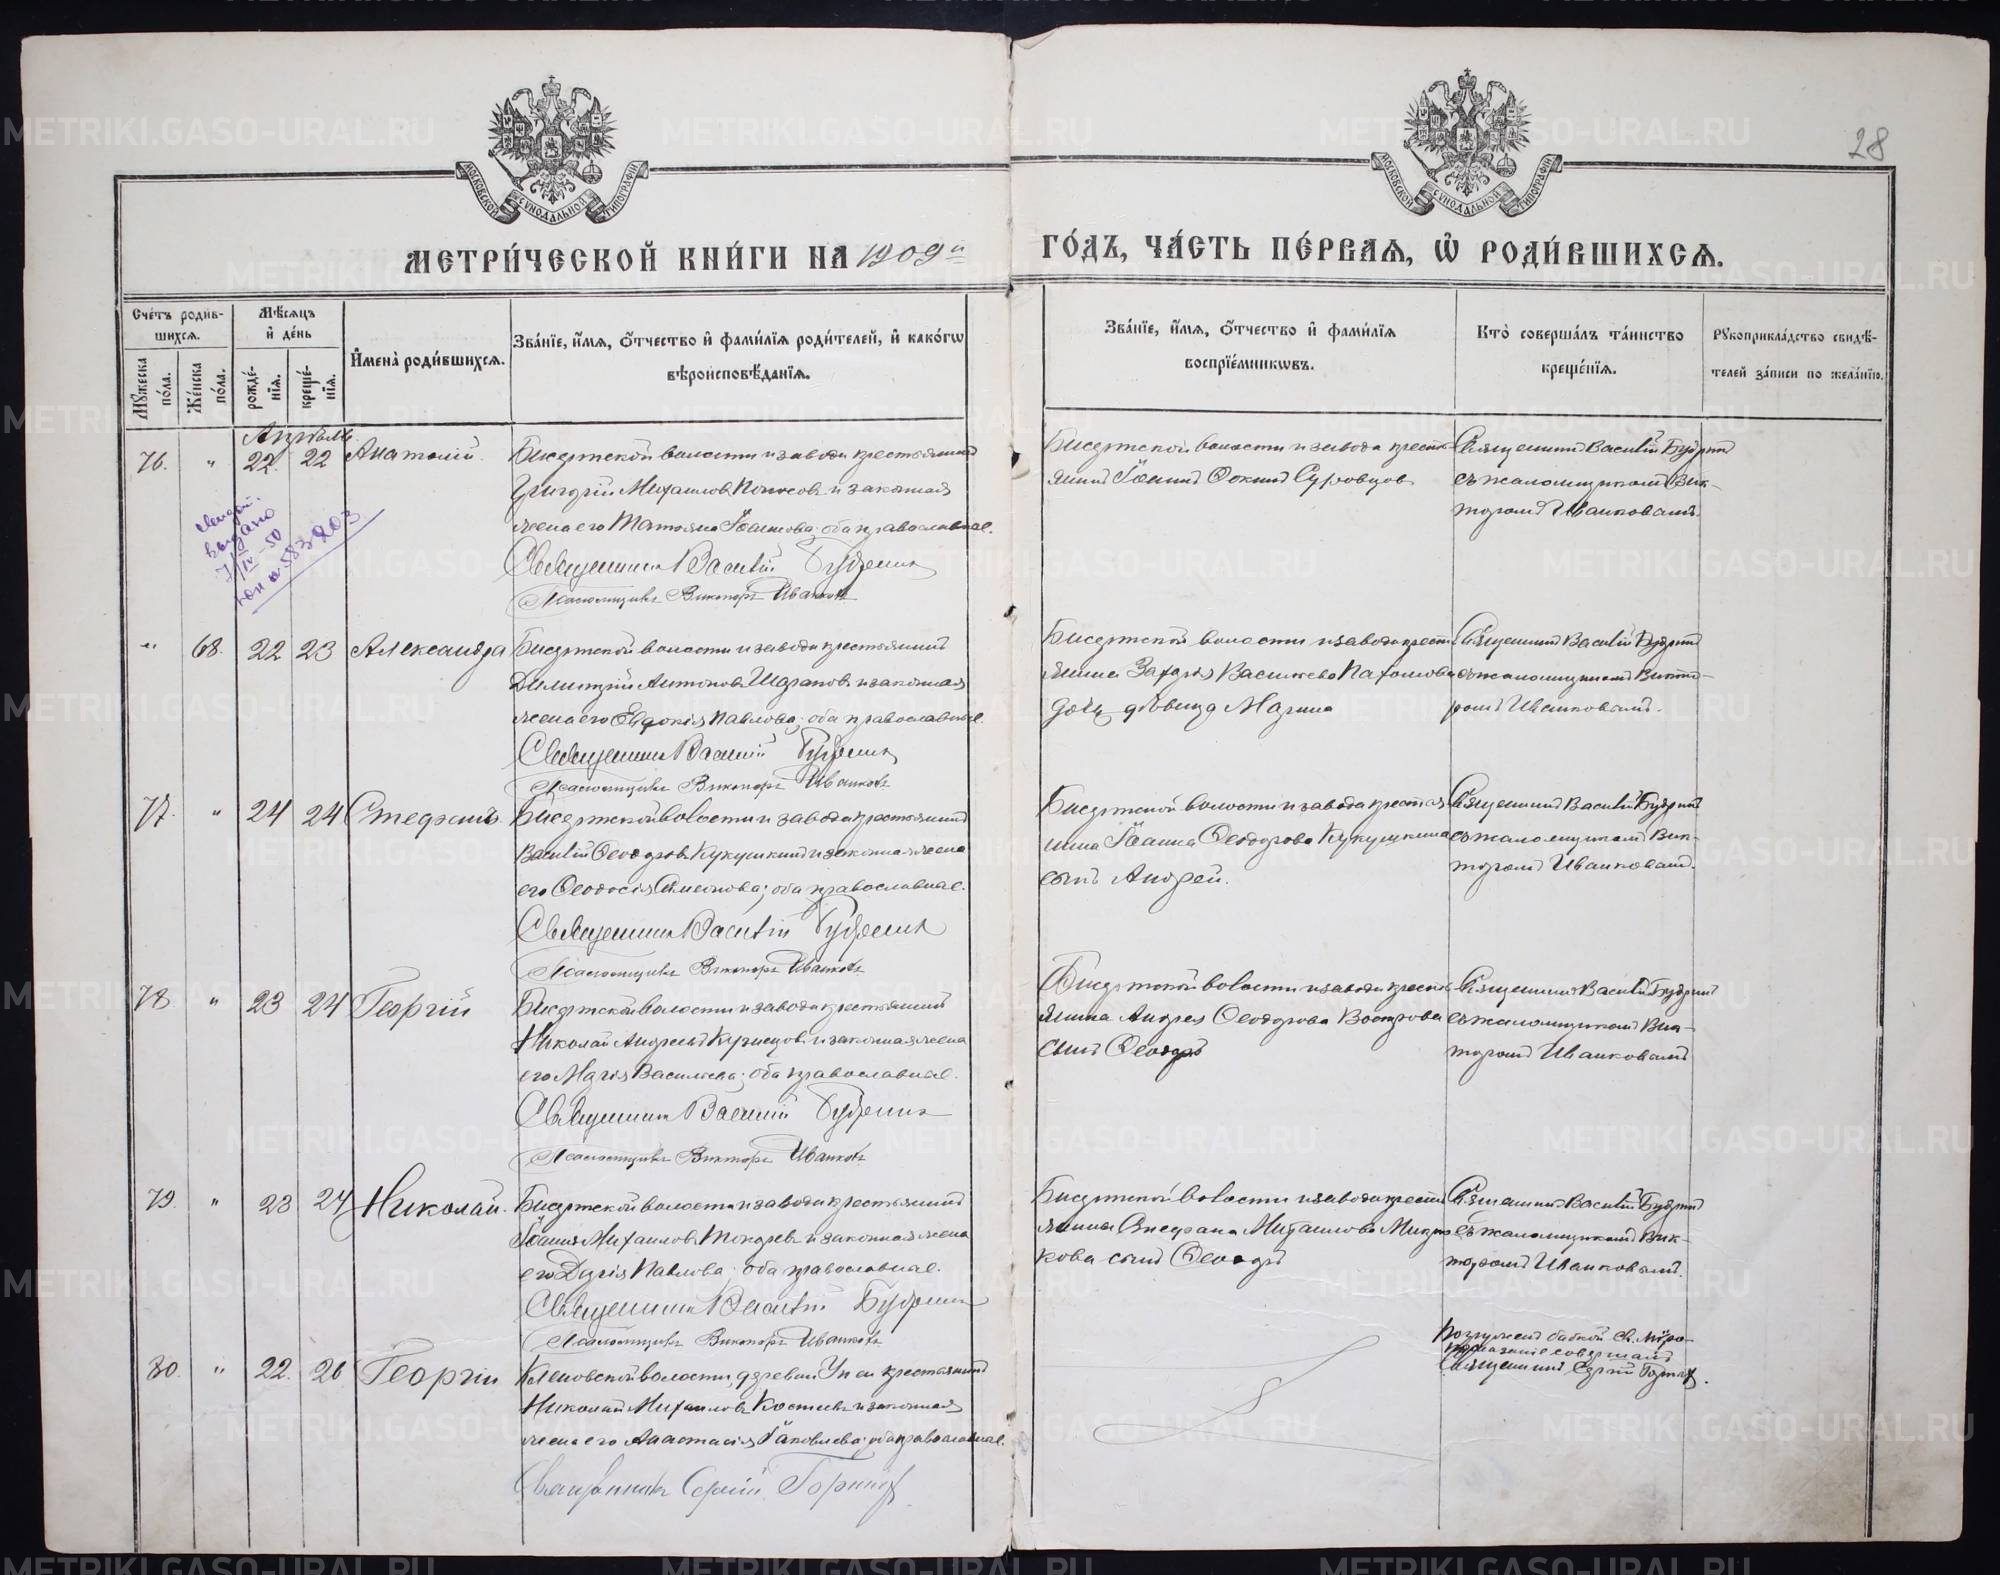 28
МОСКОВСКОЙ СѴНОДАЛЬНОЙ ТИПОГРАФІИ
МОСКОВСКОЙ СѴНОДАЛЬНОЙ ТИПОГРАФІИ
МЕТРИ́ЧЕСКОЙ КНИ́ГИ НА 1909й
ГО́ДЪ, ЧА́СТЬ ПЕ́РВАЯ, Ѿ РОДИ́ВШИХСЯ.
Сче́тъ роди́в-
шихся.
Мꙋжеска по́ла.
Же́нска по́ла.
Мѣ́сяцъ
и҆ де́нь
рожде́-
нїя.
креще́-
нїя.
И҆мена̀ роди́вшихся.
Зва́нїе, и҆́мя, ѻ҆́тчество и҆ фами́лїя роди́телей, и҆ како́гѡ
вѣроисповѣ́данїя.
Зва́нїе, и҆́мя, ѻ҆́тчество и҆ фами́лїя
воспрїе́мникѡвъ.
Кто̀ соверша́лъ та́инство
креще́нїя.
Рꙋкоприкла́дство свидѣ́-
телей за́писи по жела́нїю.
Апрѣль
76. " 22. 22 Анатолій.
Бисертской волости и завода крестьянинъ
Григорій Михаиловъ и законная
жена его Татьяна Іоаннова; оба православные.
Священникъ Василій Будринъ
Псаломщикъ Викторъ Иванковъ
выдано
7/IV-50
Бисертской волости и завода кресть-
янинъ Іоаннъ Суровцовъ
Священникъ Василій Будринъ
съ псаломщикомъ Вик-
торомъ Иванковымъ.
" 68. 22 23 Александра
Бисертской волости и завода крестьянинъ
Димитрій Антоновъ и законная
жена его Евдокія Павлова; оба православные.
Священникъ Василій Будринъ
Псаломщикъ Викторъ Иванковъ
Бисертской волости и завода кресть-
янина Захарія Васильева Пахомова
дочь дѣвица Марина
Священникъ Василій Будринъ
съ псаломщикомъ Викто-
ромъ Иванковымъ.
77. " 24 24 Стефанъ.
Бисертской волости и завода крестьянинъ
Василій Ѳеодоровъ Кукушкинъ и законная жена
его Ѳеодосія Симеонова; оба православные.
Священникъ Василій Будринъ
Псаломщикъ Викторъ Иванковъ
Бисертской волости и завода крестья-
нина Іоанна Ѳеодорова Кукушкина
сынъ Андрей.
Священникъ Василій Будринъ
съ псаломщикомъ Вик-
торомъ Иванковымъ.
78 " 23 24 Георгій
Бисертской волости и завода крестьянинъ
Николай Андреевъ Кузнецовъ и законная жена
его Марія Васильева; оба православные.
Священникъ Василій Будринъ
Псаломщикъ Викторъ Иванковъ
Бисертской волости и завода кресть-
янина Андрея Ѳеодорова Вострова
сынъ Ѳеодоръ
Священникъ Василій Будринъ
съ псаломщикомъ Вик-
торомъ Иванковымъ
79. " 23 24 Николай.
Бисертской волости и завода крестьянинъ
Іоаннъ Михаиловъ Токаревъ и законная жена
его Дарія Павлова; оба православные.
Священникъ Василій Будринъ
Псаломщикъ Викторъ Иванковъ
Бисертской волости и завода кресть-
янина Стефана Михаилова
сынъ Ѳеодоръ
Священникъ Василій Будринъ
съ псаломщикомъ Вик-
торомъ Иванковымъ.
80. " 22. 26 Георгій
Кленовской волости, деревни крестьянинъ
Николай Михаиловъ Костинъ и законная
жена его Анастасія Іаковлева; оба православные.
Священникъ Сергій
Погруженъ бабкой Св. Мѵро-
помазаніе совершалъ
Священникъ Сергій
METRIKI.GASO-URAL.RU